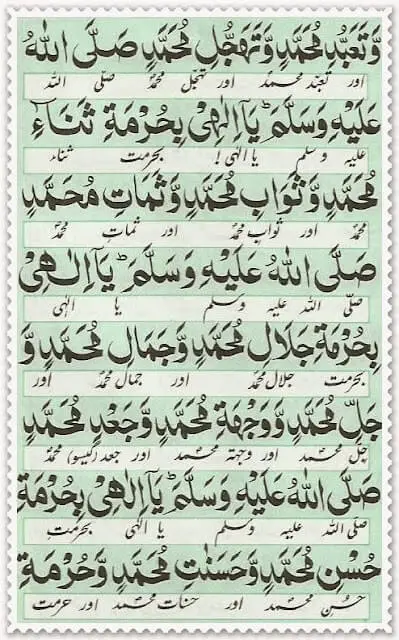 وَّتَعَبُّدِ مُحَمَّدٍ وَّتَهَجُّلِ مُحَمَّدٍ صَلَّى اللّٰهُ
اور تعبد محمد اور تہجل محمد صلی اللہ
عَلَيْهِ وَسَلَّمَ ؕ يَآ اِلٰهِىْ بِحُرْمَةِ ثَنَآءِ
علیہ وسلم یا الٰہی! بحرمت ثناء
مُحَمَّدٍ وَّثَوَابِ مُحَمَّدٍ وَّثَمَاتِ مُحَمَّدٍ
محمد اور ثواب محمد اور ثمات محمد
صَلَّى اللّٰهُ عَلَيْهِ وَسَلَّمَ ؕ يَآ اِلٰهِىْ
صلی اللہ علیہ وسلم یا الٰہی
بِحُرْمَةِ جَلَالِ مُحَمَّدٍ وَّجَمَالِ مُحَمَّدٍ وَّ
بحرمت جلال محمد اور جمال محمد اور
جَلِّ مُحَمَّدٍ وَّوَجْهَةِ مُحَمَّدٍ وَّجَعْدِ مُحَمَّدٍ
جل محمد اور وجہتہ محمد اور جعد (گیسو) محمد
صَلَّى اللّٰهُ عَلَيْهِ وَسَلَّمَ ؕ يَآ اِلٰهِىْ بِحُرْمَةِ
صلی اللہ علیہ وسلم یا الٰہی بحرمتِ
حُسْنِ مُحَمَّدٍ وَّحَسَنٰتِ مُحَمَّدٍ وَّحُرْمَةِ
حُسنِ محمد اور حسنات محمد اور حرمت